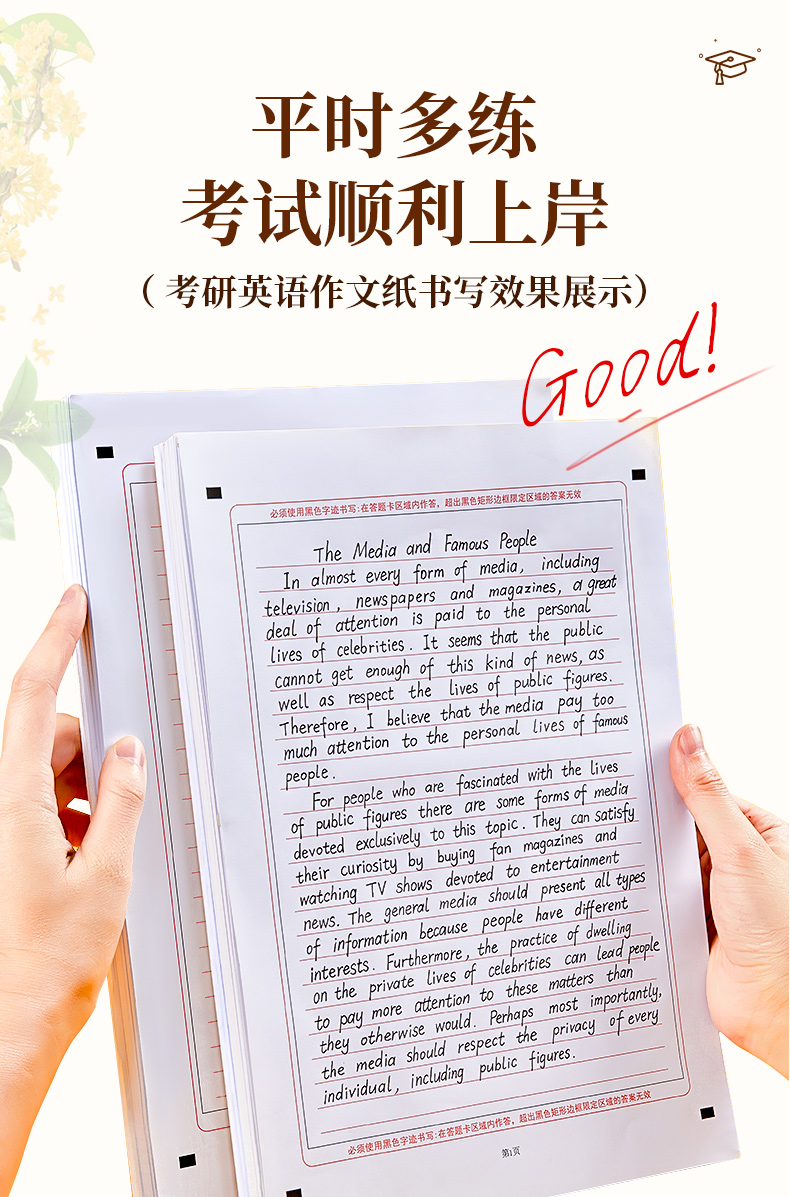 平时多练
考试顺利上岸
（考研英语作文纸书写效果展示）
Good!
必须使用黑色字迹书写:在答题卡区域内作答，超出黑色矩形边框限定区域的答案无效
The Media and Famous People
In almost every form of media, including
television, newspapers and magazines, a great
deal of attention is paid to the personal
lives of celebrities. It seems that the public
cannot get enough of this kind of news, as
well as respect the lives of public figures.
Therefore, I believe that the media pay too
much attention to the personal lives of famous
people.
For people who are fascinated with the lives
of public figures there are some forms of media
devoted exclusively to this topic. They can satisfy
their curiosity by buying fan magazines and
watching TV shows devoted to entertainment
news. The general media should present all types
of information because people have different
interests. Furthermore, the practice of dwelling
on the private lives of celebrities can lead people
to pay more attention to these matters than
they otherwise would. Perhaps most importantly,
the media should respect the privacy of every
individual, including public figures.
必须使用黑色字迹书写:在答题卡区域内作答，超出黑色矩形边框限定区域的答案无效
第1页